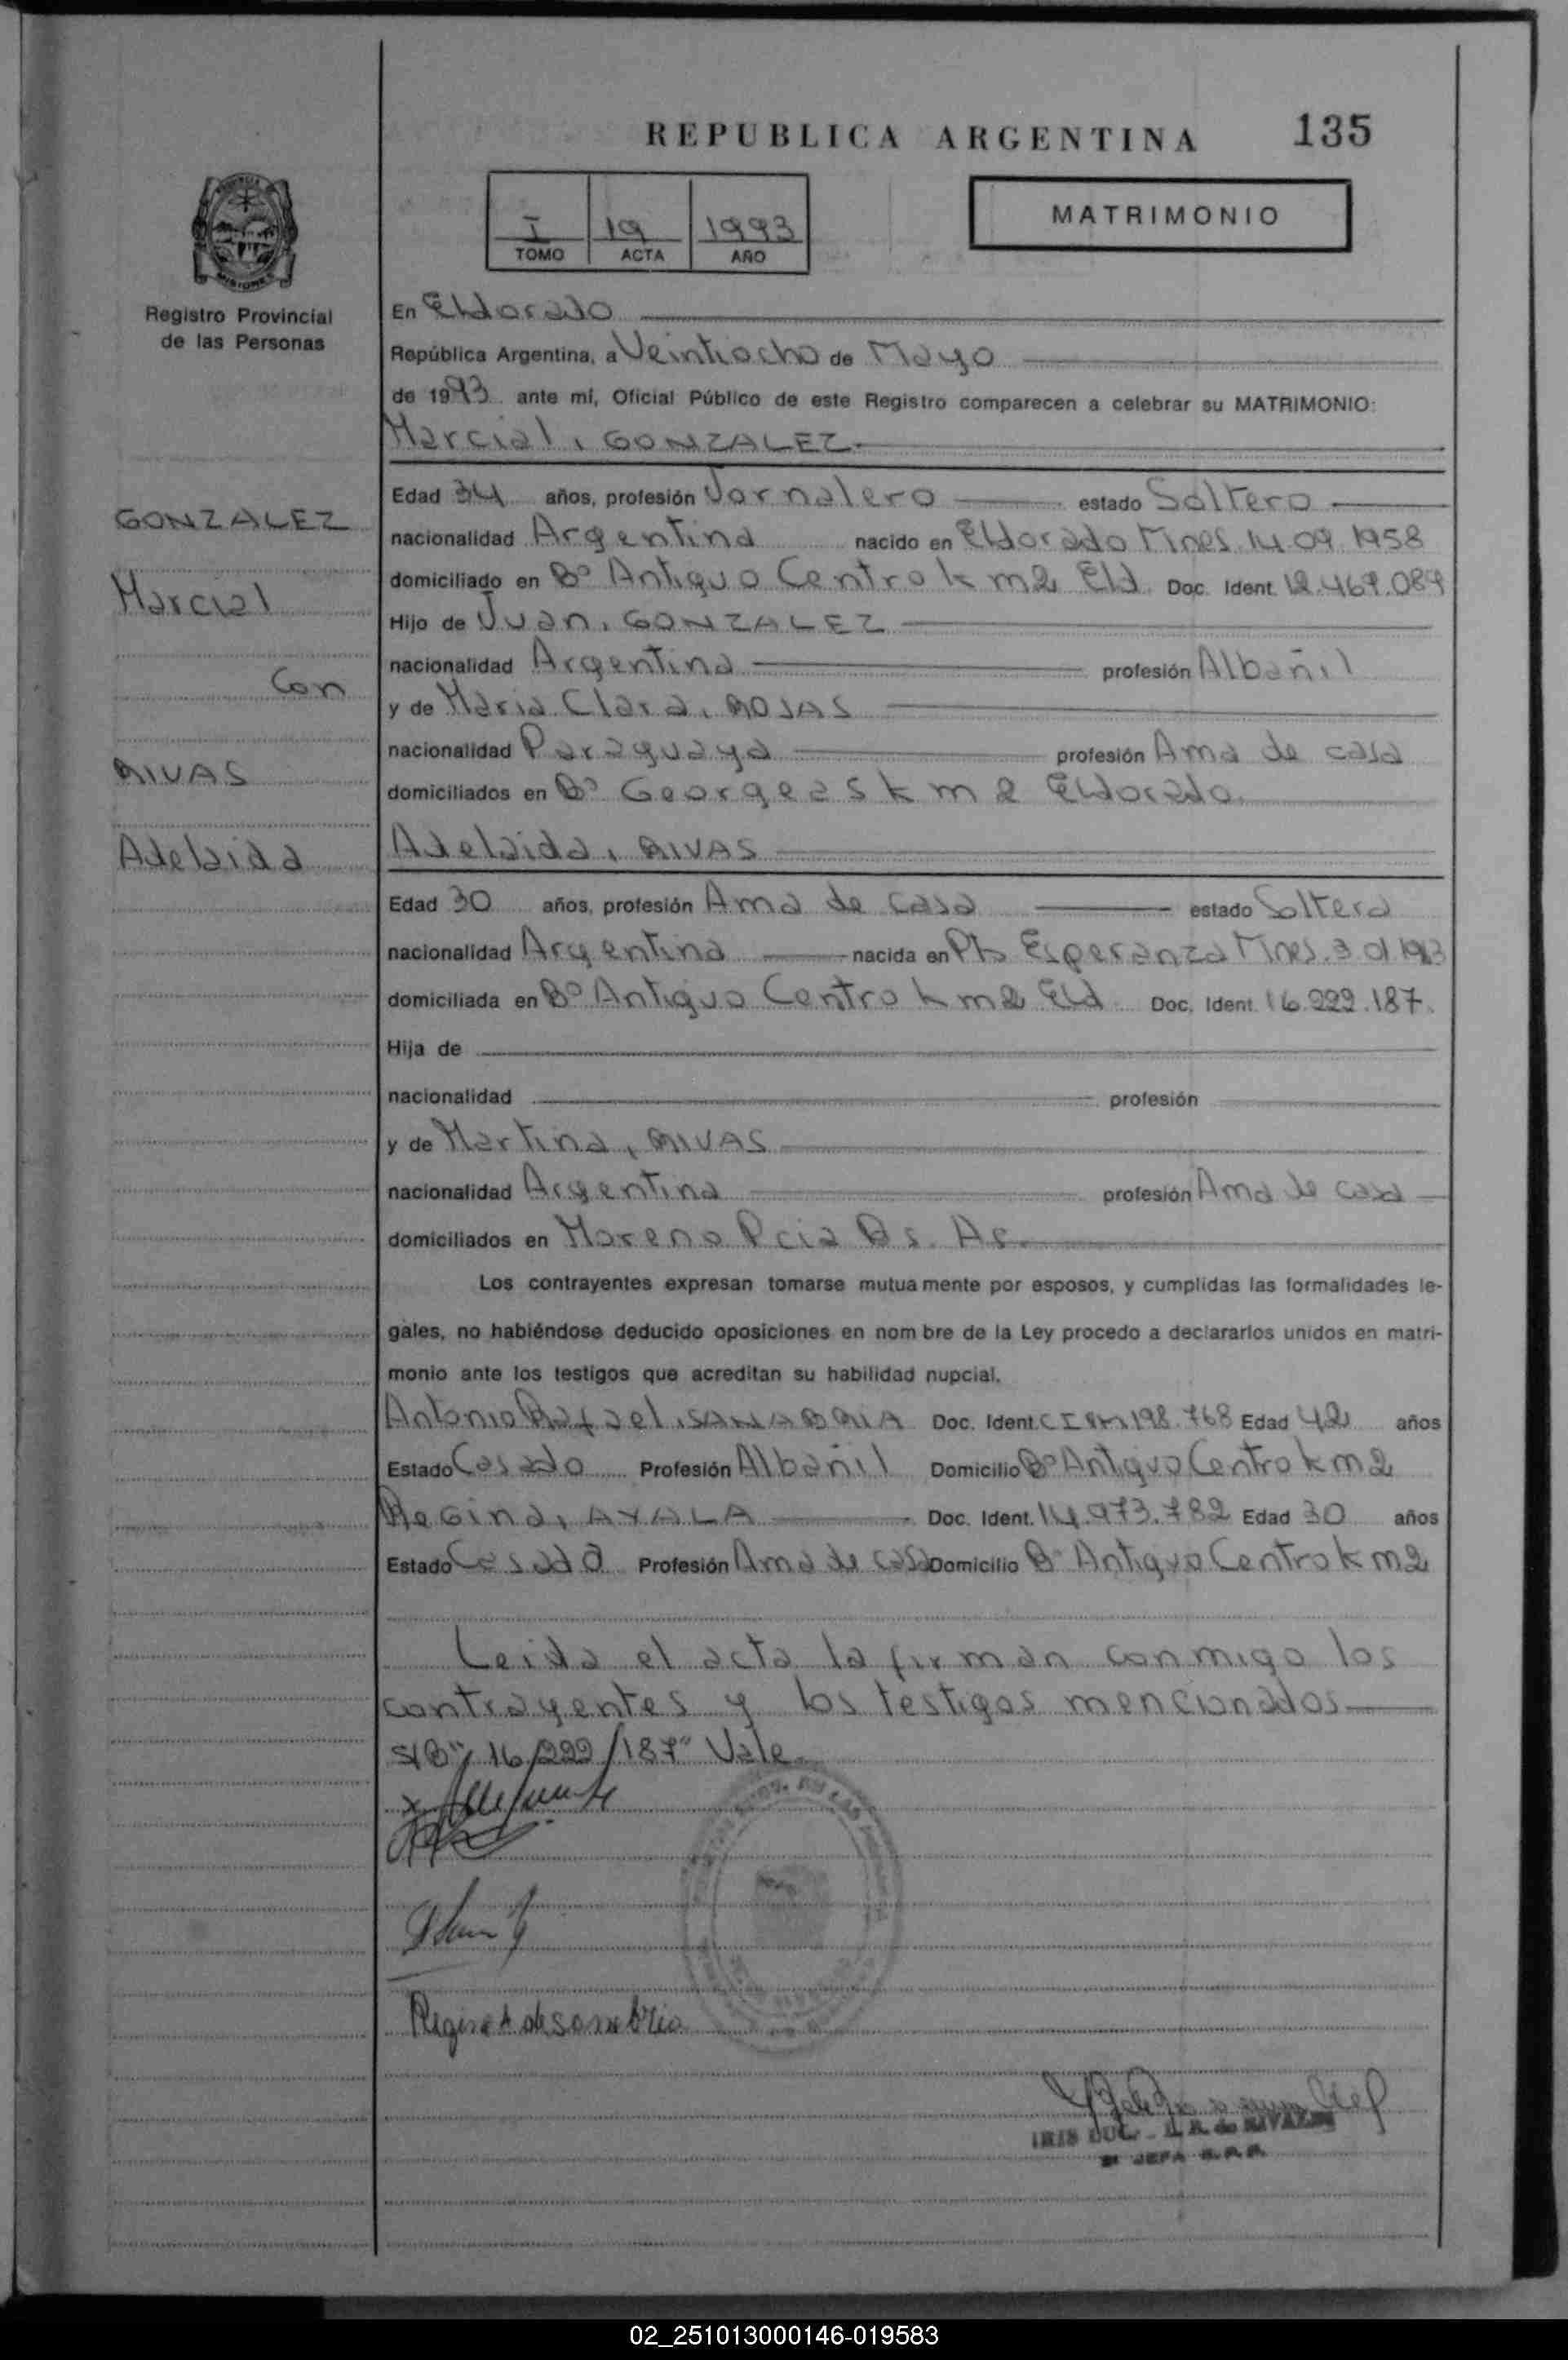 REPUBLICA ARGENTINA 135
MATRIMONIO
I 19 1993
TOMO ACTA AÑO
PROVINCIA
MISIONES
Registro Provincial
de las Personas
En Eldorado
República Argentina, a Veintiocho de Mayo
de 1993 ante mí, Oficial Público de este Registro comparecen a celebrar su MATRIMONIO:
Marcial, GONZALEZ
GONZALEZ
Marcial
Con
RIVAS
Adelaida
Edad 34 años, profesión Jornalero estado Soltero
nacionalidad Argentina nacido en Eldorado Mnes. 14 09 1958
domiciliado en B° Antiguo Centro km2 Eld. Doc. Ident. 12.469.089
Hijo de Juan, GONZALEZ
nacionalidad Argentina profesión Albañil
y de Maria Clara, ROJAS
nacionalidad Paraguaya profesión Ama de casa
domiciliados en B° km 2 Eldorado.
Adelaida, RIVAS
Edad 30 años, profesión Ama de casa estado Soltera
nacionalidad Argentina nacida en Pto Esperanza Mnes. 3 01
domiciliada en B° Antiguo Centro km2 Eld Doc. Ident. 16.222.187.
Hija de
nacionalidad profesión
y de Martina, RIVAS
nacionalidad Argentina profesión Ama de casa
domiciliados en Moreno Pcia Bs. As.
Los contrayentes expresan tomarse mutua mente por esposos, y cumplidas las formalidades le-
gales, no habiéndose deducido oposiciones en nom bre de la Ley procedo a declararlos unidos en matri-
monio ante los testigos que acreditan su habilidad nupcial.
Antonio Rafael, SANABRIA Doc. Ident. 198.768 Edad 42 años
Estado Casado Profesión Albañil Domicilio B° Antiguo Centro km2
Regina, AYALA Doc. Ident. 14.973.782 Edad 30 años
Estado Casada Profesión Ama de casa Domicilio B° Antiguo Centro km2
Leida el acta la firman conmigo los
contrayentes y los testigos mencionados
S/B "16/222/187" Vale.
Regina A de sanabria
IRIS de RIVALDI
JEFA R.P.P.
02_251013000146-019583